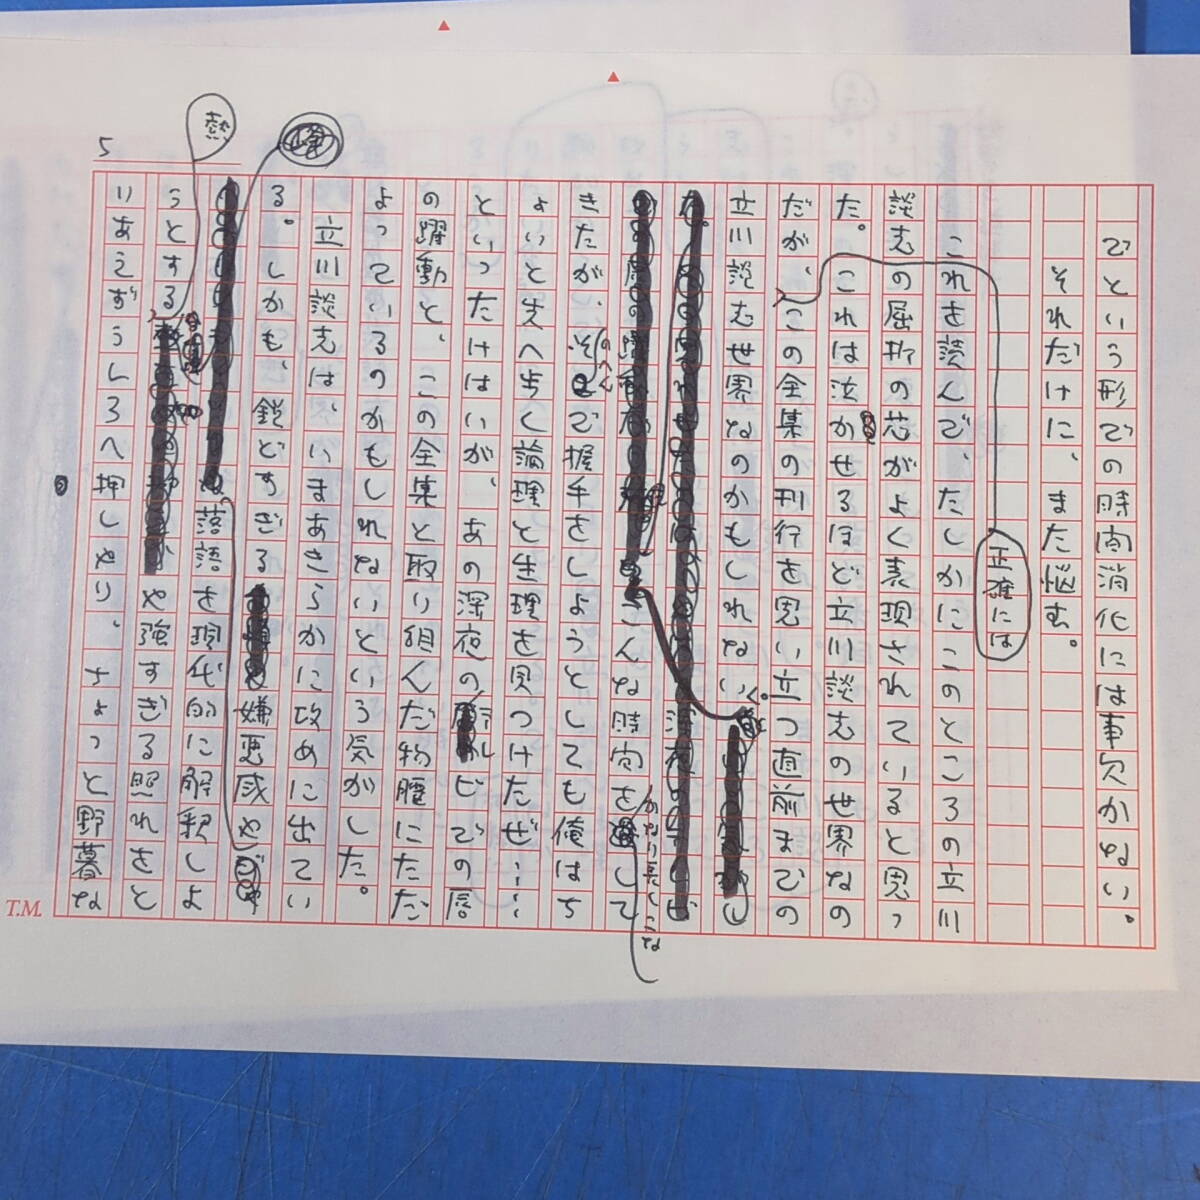 5
でという形での時間消化には事欠かない。
それだけに、また悩む。
正確には
これを読んで、たしかにこのところの立川
談志の屈折の芯がよく表現されていると思っ
た。これは泣かせるほど立川談志の世界なの
だが、この全集の刊行を思い立つ直前までの
立川談志世界なのかもしれない
こんな時間を
して
かなり長いこと
きたが、そのへんで握手をしようとしても俺はち
ょいと先へ歩く論理と生理を見つけたぜ……
といったけはいが、あの深夜のビデの唇
の躍動と、この全集と取り組んだ物腰にただ
よっているのかもしれないという気がした。
立川談志は、いまあきらかに攻めに出てい
る。しかも、鋭どすぎる嫌悪感や
落語を現代的に解釈しよ
うとする熱
や強すぎる照れをと
りあえずうしろへ押しやり、ちょっと野暮な
T.M.